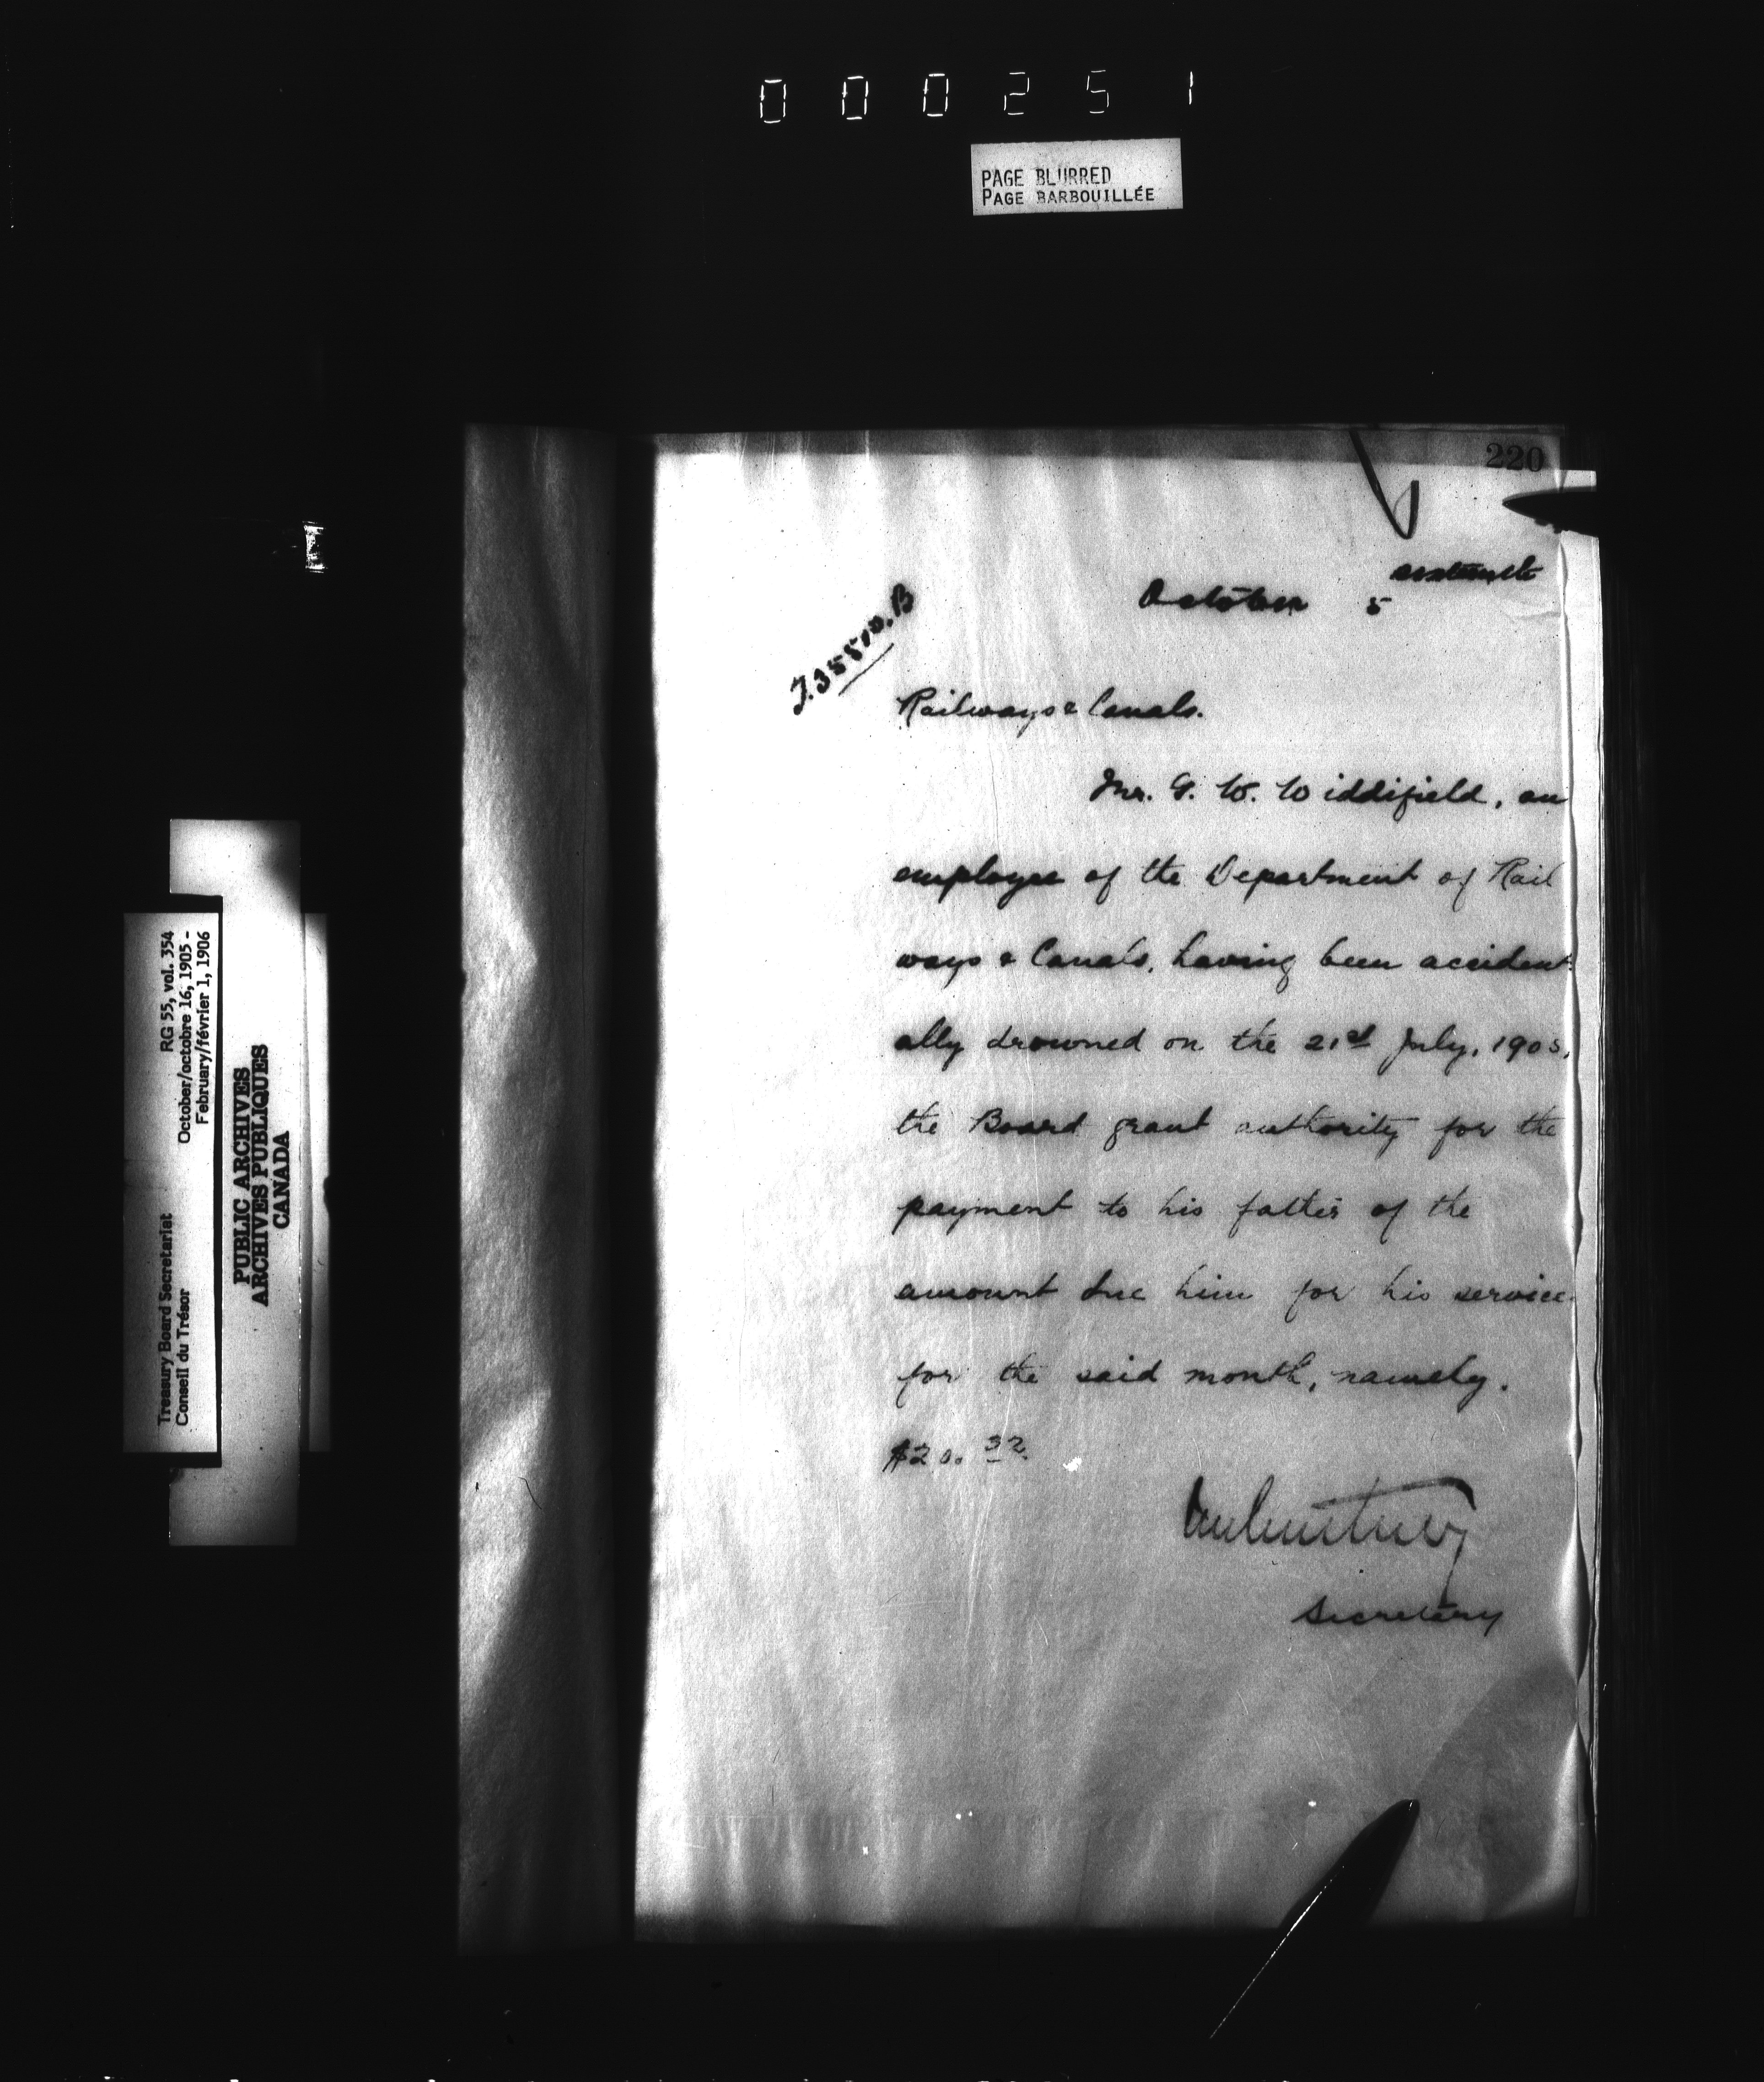 000251
PAGE BLURRED
PAGE BARBOUILLÉE
220
sixteenth
October 5
Railways & Canals.
Mr. G. W. Widdifield, an
employee of the Department of Rail
ways & Canals, having been accident
ally drowned on the 21st July, 1905,
the Board grant authority for the
payment to his father of the
amount due him for his service
for the said month, namely.
$20.32.
Secretary
Treasury Board Secretariat RG 55, vol. 354
Conseil du Trésor October/octobre 16, 1905 -
February/février 1, 1906
PUBLIC ARCHIVES
ARCHIVES PUBLIQUES
CANADA